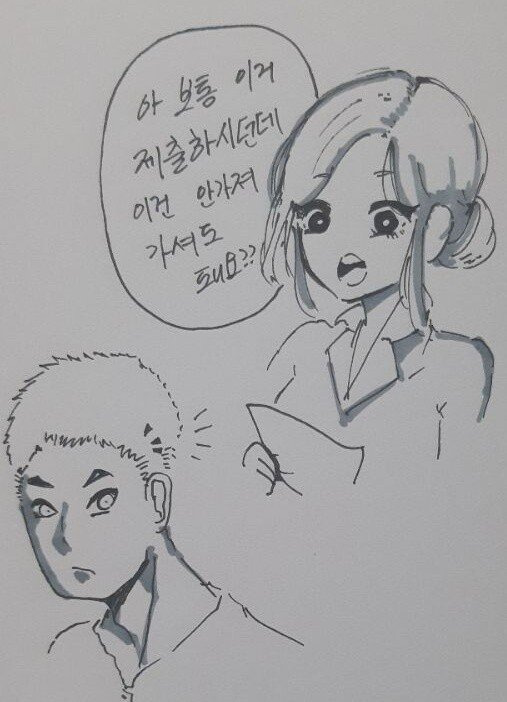 아 보통 이거
제출하시던데
이건 안가져
가셔도
돼요??